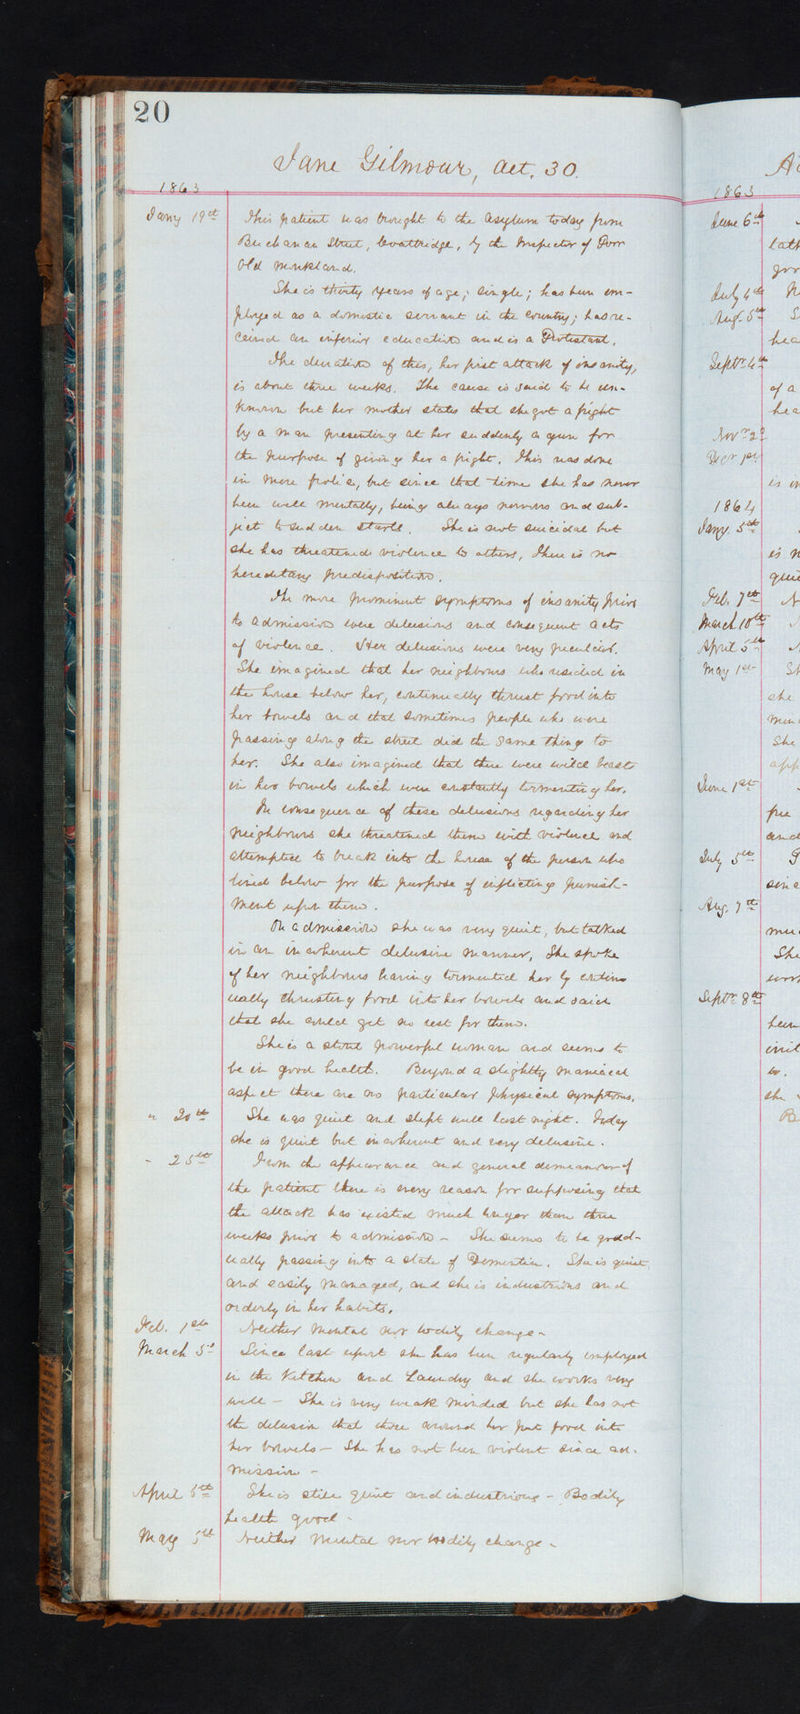 20
Jane Gilmour, aet. 30.
1863
Jany 19th This patient was brought to the asylum today from
Buchanan Street, Coatbridge, by the Inspector of Poor
Old Monkland.
She is thirty years of age; single; has been em-
ployed as a domestic servant in the country; has re-
ceived an inferior education and is a Protestant.
The duration of this, her first attack of insanity,
is about three weeks. The cause is said to be un-
known but her mother states that she got a fright
by a man presenting at her suddenly a gun for
the purpose of giving her a fright. This was done
in mere frolic, but since that time she has never
been well mentally, being always nervous and sub-
ject to sudden starts. She is not suicidal but
she has threatened violence to others, There is no
hereditary predisposition.
The more prominent symptoms of insanity prior
to admission were delusions and consequent acts
of violence. Her delusions were very peculiar.
She imagined that her neighbours who resided in
the house below her, continually thrust food into
her bowels and that sometimes people who were
passing along the street did the same thing to
her. She also imagined that there were wild beasts
in her bowels which were constantly tormenting her.
In consequence of these delusions regarding her
neighbours she threatened them with violence and
attempted to break into the house of the person who
lived below for the purpose of inflicting punish-
ment upon them.
On admission she was very quiet, but talked
in an incoherent delusive manner, She spoke
of her neighbours having tormented her by contin
ually thrusting food into her bowels and said
that she could get no rest for them.
She is a stout powerful woman and seems to
be in good health. Beyond a slightly maniacal
aspect there are no particular physical symptoms.
" 20th She was quiet and slept well last night. Today
she is quiet but incoherent and very delusive.
- 25th From the appearance and general demeanour of
the patient there is every reason for supposing that
the attack has existed much longer than three
weeks prior to admission - She seems to be grad-
ually passing into a state of Dementia. She is quiet
and easily managed, and she is industrious and
orderly in her habits.
Feb. 1st Neither mental nor bodily change -
March 5th Since last report she has been regularly employed
in the Kitchen and Laundry and she works very
well - She is very weak minded but she has not
the delusion that those around her put food into
her bowels - She has not been violent since ad-
mission -
April 5th She is still quiet and industrious - Bodily
health good -
May 5th Neither mental nor bodily change -
1863
June 6th
July 4th
Aug. 5th
Septr. 6th
of a
Novr 2d
Decr 1st
1864
Jany. 5th
Feb. 7th
March 10th
April 5th
May 1st
she
She
June 1st
July 5th
Aug. 7th
She
Septr 8th
she